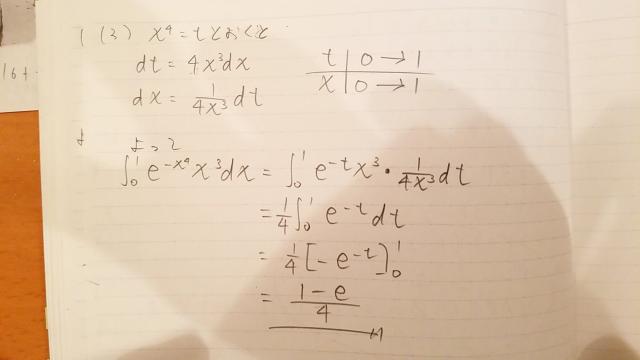 1 (3) x⁴ = tとおくと
dt = 4x³dx
dx = 1/(4x³) dt
t | 0 → 1
x | 0 → 1
よって
∫₀¹ e^(-x⁴) x³dx = ∫₀¹ e^(-t) x³ · 1/(4x³) dt
= 1/4 ∫₀¹ e^(-t) dt
= 1/4 [-e^(-t)]₀¹
= (1-e)/4